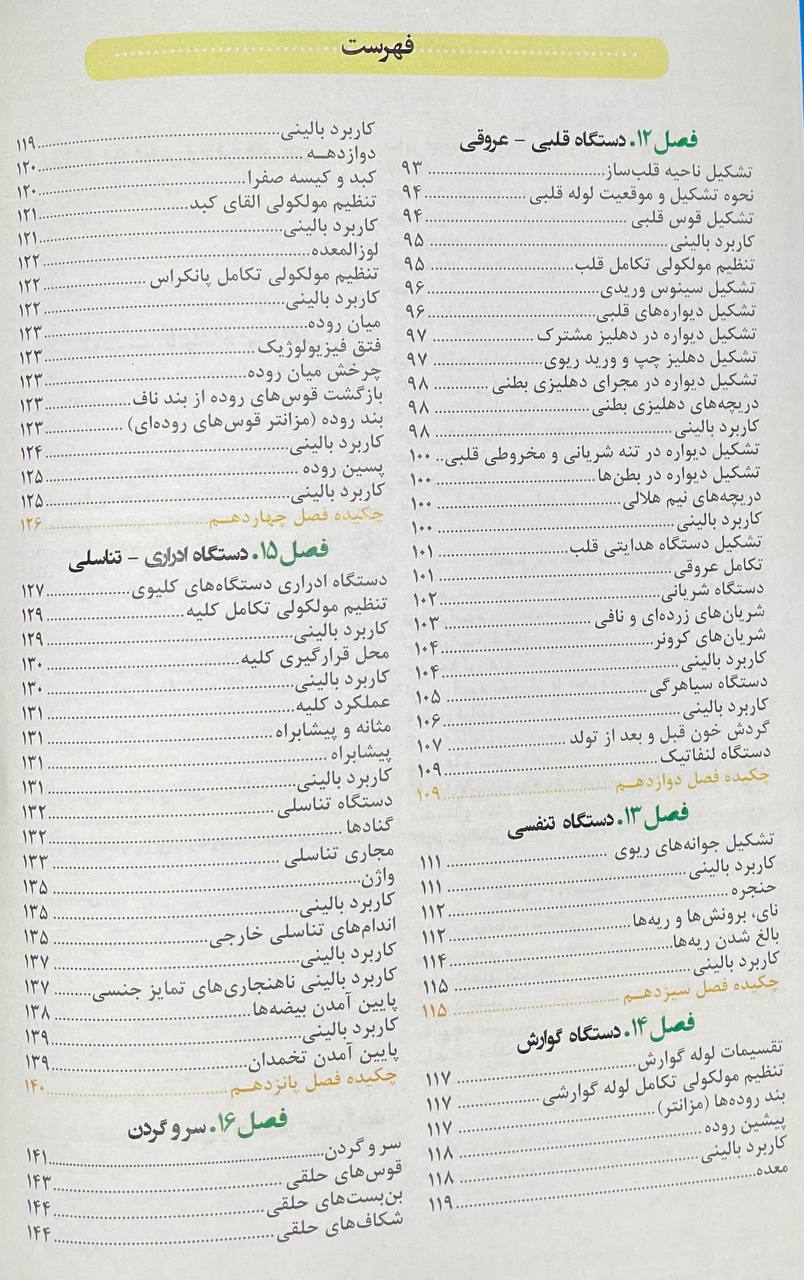 فهرست
فصل ۱۲. دستگاه قلبی - عروقی
تشکیل ناحیه قلب‌ساز ۹۳
نحوه تشکیل و موقعیت لوله قلبی ۹۴
تشکیل قوس قلبی ۹۴
کاربرد بالینی ۹۵
تنظیم مولکولی تکامل قلب ۹۵
تشکیل سینوس وریدی ۹۶
تشکیل دیواره‌های قلبی ۹۶
تشکیل دیواره در دهلیز مشترک ۹۷
تشکیل دهلیز چپ و ورید ریوی ۹۷
تشکیل دیواره در مجرای دهلیزی بطنی ۹۸
دریچه‌های دهلیزی بطنی ۹۸
کاربرد بالینی ۹۸
تشکیل دیواره در تنه شریانی و مخروطی قلبی ۱۰۰
تشکیل دیواره در بطن‌ها ۱۰۰
دریچه‌های نیم هلالی ۱۰۰
کاربرد بالینی ۱۰۰
تشکیل دستگاه هدایتی قلب ۱۰۱
تکامل عروقی ۱۰۱
دستگاه شریانی ۱۰۲
شریان‌های زرده‌ای و نافی ۱۰۳
شریان‌های کرونر ۱۰۴
کاربرد بالینی ۱۰۴
دستگاه سیاهرگی ۱۰۵
کاربرد بالینی ۱۰۶
گردش خون قبل و بعد از تولد ۱۰۷
دستگاه لنفاتیک ۱۰۹
چکیده فصل دوازدهم ۱۰۹
فصل ۱۳. دستگاه تنفسی
تشکیل جوانه‌های ریوی ۱۱۱
کاربرد بالینی ۱۱۱
حنجره ۱۱۲
نای، برونش‌ها و ریه‌ها ۱۱۲
بالغ شدن ریه‌ها ۱۱۴
کاربرد بالینی ۱۱۵
چکیده فصل سیزدهم ۱۱۵
فصل ۱۴. دستگاه گوارش
تقسیمات لوله گوارش ۱۱۷
تنظیم مولکولی تکامل لوله گوارشی ۱۱۷
بند روده‌ها (مزانتر) ۱۱۷
پیشین روده ۱۱۸
کاربرد بالینی ۱۱۸
معده ۱۱۹
کاربرد بالینی ۱۱۹
دوازدهه ۱۲۰
کبد و کیسه صفرا ۱۲۰
تنظیم مولکولی القای کبد ۱۲۱
کاربرد بالینی ۱۲۱
لوزالمعده ۱۲۲
تنظیم مولکولی تکامل پانکراس ۱۲۲
کاربرد بالینی ۱۲۲
میان روده ۱۲۳
فتق فیزیولوژیک ۱۲۳
چرخش میان روده ۱۲۳
بازگشت قوس‌های روده از بند ناف ۱۲۳
بند روده (مزانتر قوس‌های روده‌ای) ۱۲۳
کاربرد بالینی ۱۲۴
پسین روده ۱۲۵
کاربرد بالینی ۱۲۵
چکیده فصل چهاردهم ۱۲۶
فصل ۱۵. دستگاه ادراری - تناسلی
دستگاه ادراری دستگاه‌های کلیوی ۱۲۷
تنظیم مولکولی تکامل کلیه ۱۲۹
کاربرد بالینی ۱۲۹
محل قرارگیری کلیه ۱۳۰
کاربرد بالینی ۱۳۰
عملکرد کلیه ۱۳۱
مثانه و پیشابراه ۱۳۱
پیشابراه ۱۳۱
کاربرد بالینی ۱۳۱
دستگاه تناسلی ۱۳۲
گنادها ۱۳۲
مجاری تناسلی ۱۳۳
واژن ۱۳۵
کاربرد بالینی ۱۳۵
اندام‌های تناسلی خارجی ۱۳۵
کاربرد بالینی ۱۳۷
کاربرد بالینی ناهنجاری‌های تمایز جنسی ۱۳۷
پایین آمدن بیضه‌ها ۱۳۸
کاربرد بالینی ۱۳۹
پایین آمدن تخمدان ۱۳۹
چکیده فصل پانزدهم ۱۴۰
فصل ۱۶. سر و گردن
سر و گردن ۱۴۱
قوس‌های حلقی ۱۴۳
بن‌بست‌های حلقی ۱۴۴
شکاف‌های حلقی ۱۴۴